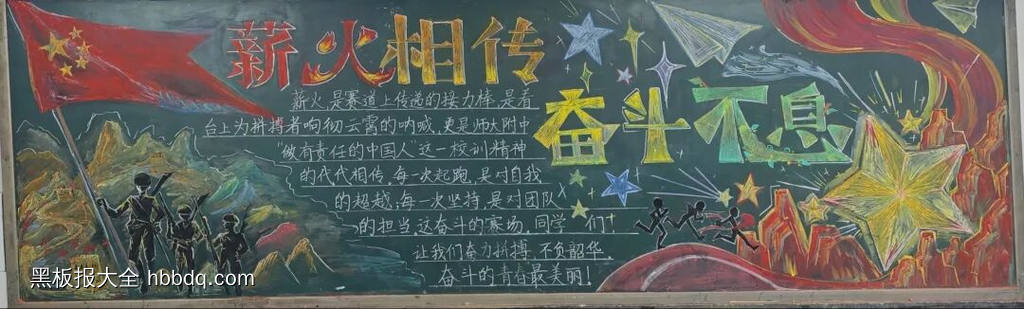 薪火相传
奋斗不息
薪火是赛道上传递的接力棒，是看
台上为拼搏者响彻云霄的呐喊，更是师大附中
“做有责任的中国人”这一校训精神
的代代相传，每一次起跑，是对自我
的超越，每一次坚持，是对团队
的担当，这奋斗的赛场，同学们！
让我们奋力拼搏，不负韶华
奋斗的青春最美丽！
黑板报大全 hbbdq.com